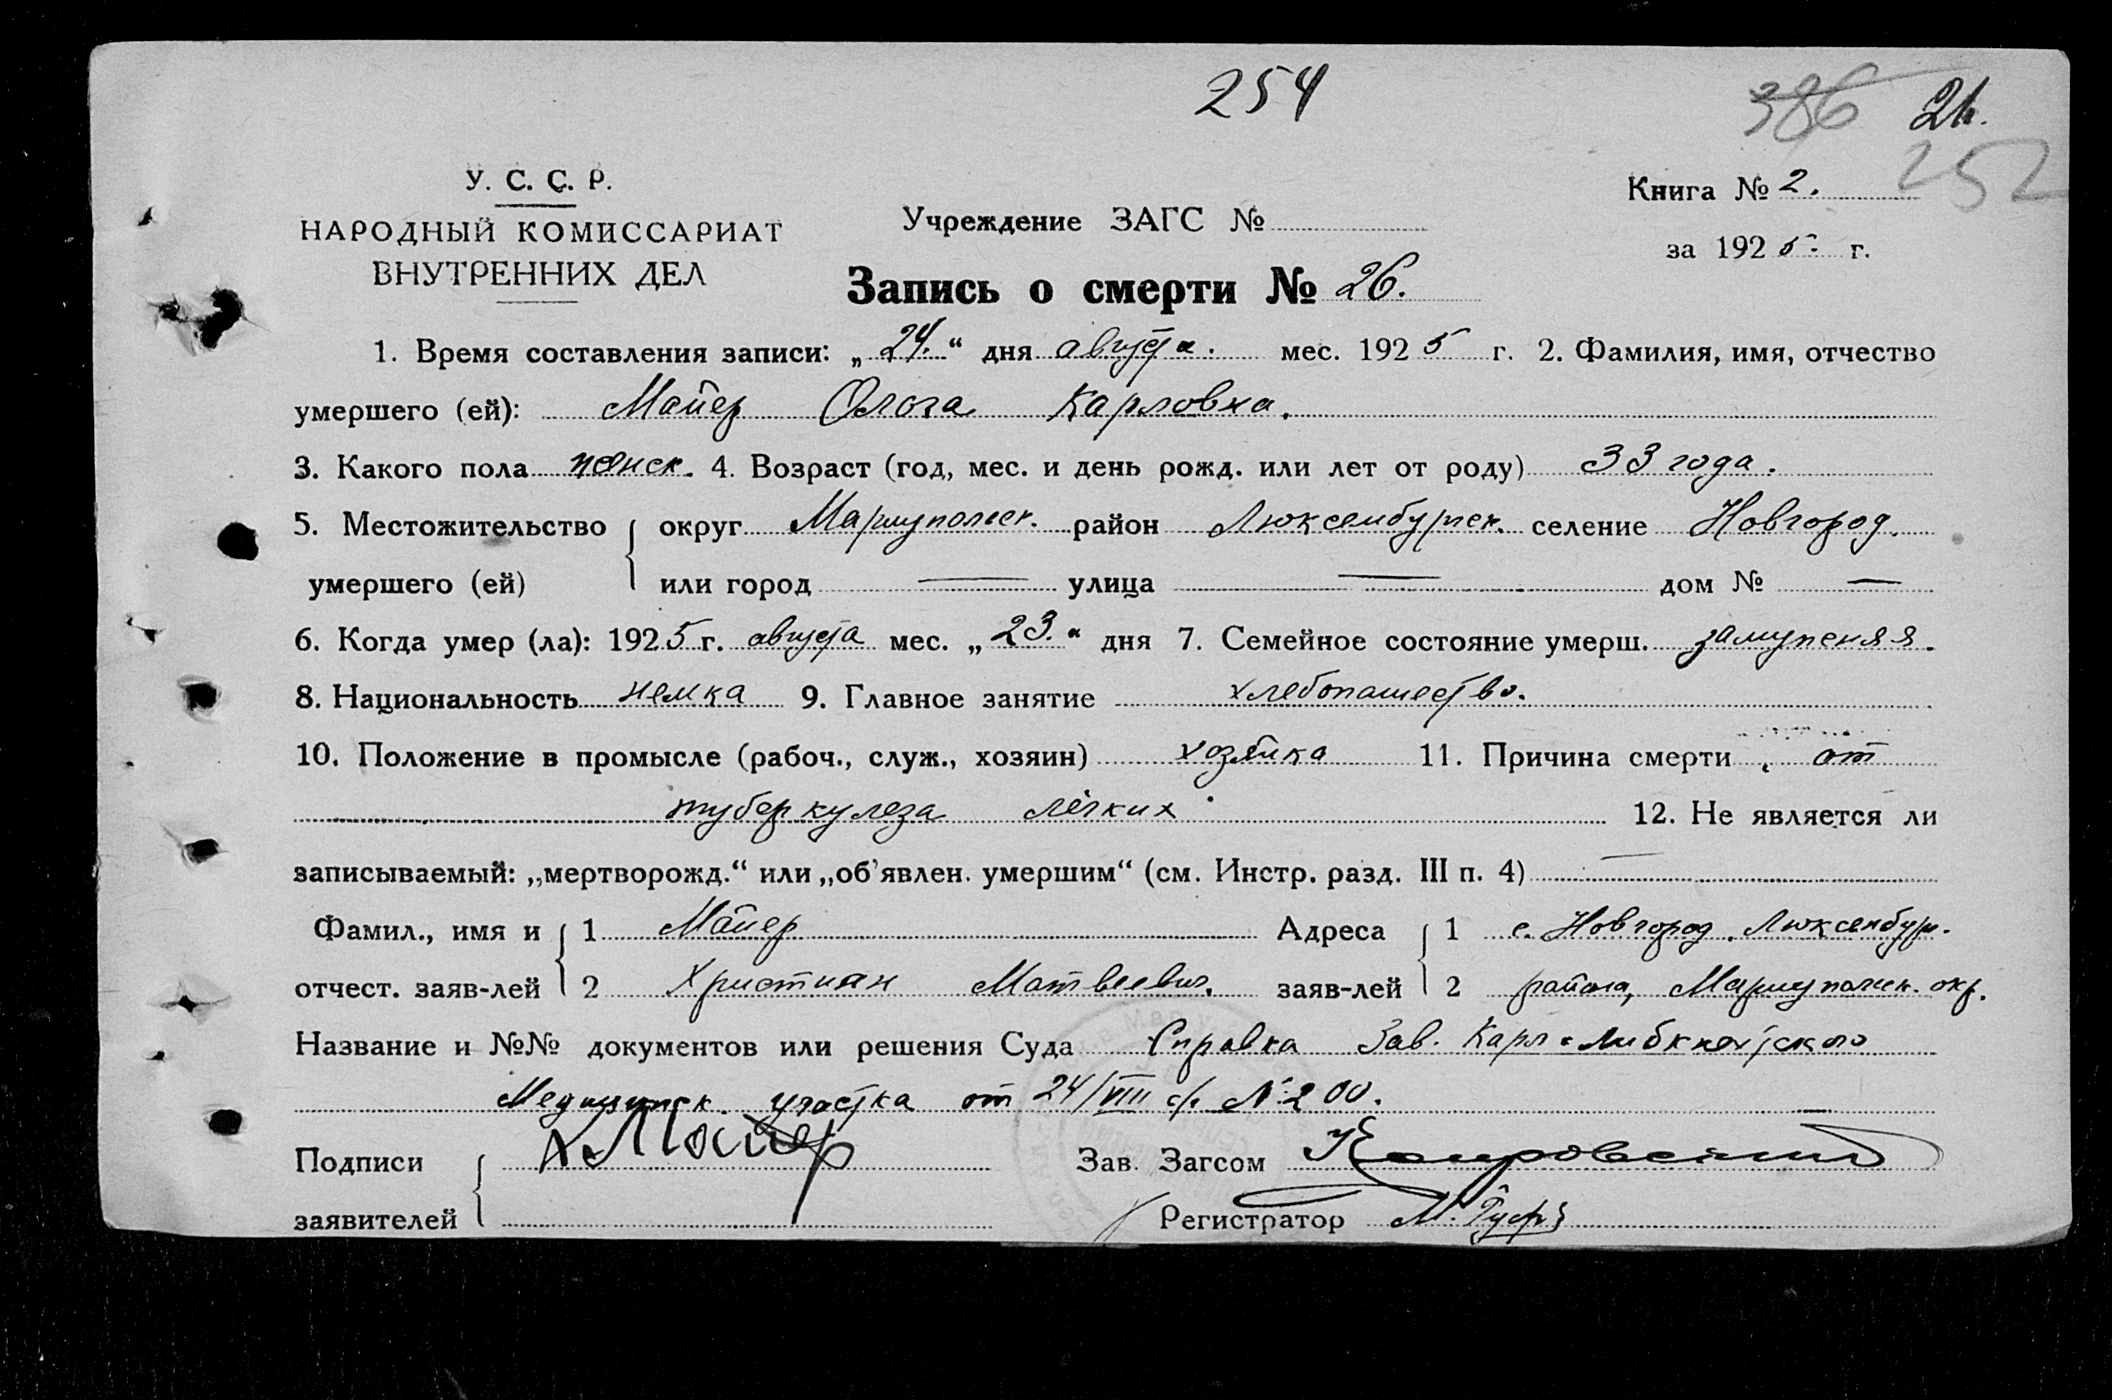 254
386 26.
252
У. С. С. Р.
НАРОДНЫЙ КОМИССАРИАТ
ВНУТРЕННИХ ДЕЛ
Учреждение ЗАГС №
Книга № 2.
за 1925 г.
Запись о смерти № 26.
1. Время составления записи: „24.“ дня августа. мес. 1925 г. 2. Фамилия, имя, отчество
умершего (ей): Майер Ольга Карловна.
3. Какого пола женск. 4. Возраст (год, мес. и день рожд. или лет от роду) 33 года.
5. Местожительство { округ Мариупольск. район Люксембургск. селение Новгород.
умершего (ей) или город — улица — дом № —
6. Когда умер (ла): 1925 г. августа мес. „23.“ дня 7. Семейное состояние умерш. замужняя.
8. Национальность немка 9. Главное занятие хлебопашество.
10. Положение в промысле (рабоч., служ., хозяин) хозяйка 11. Причина смерти от
туберкулеза лёгких. 12. Не является ли
записываемый: „мертворожд.“ или „об’явлен. умершим“ (см. Инстр. разд. III п. 4) —
Фамил., имя и { 1 Майер Адреса { 1 с. Новгород, Люксембур.
отчест. заяв-лей 2 Христиан Матвеевич. заяв-лей 2 района, Мариупольск. окр.
Название и №№ документов или решения Суда Справка Зав. Карл-Либкнехтского
Медицинск. участка от 24/VIII с/г. № 200.
Подписи { Х Майер Зав. Загсом
заявителей Регистратор М.